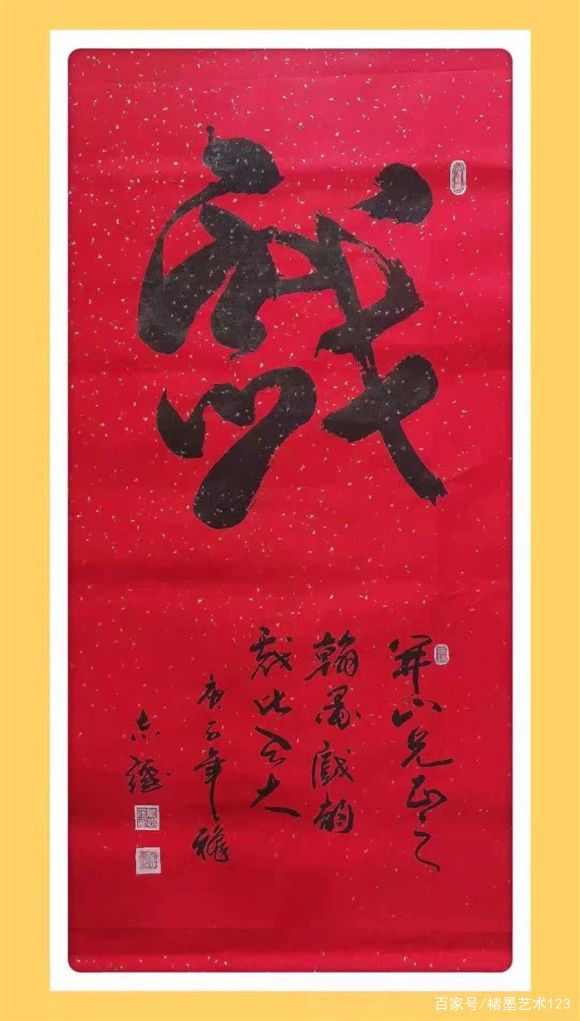 戲
兄正之
翰墨戲韵
戏比天大
庚子年
百家号/楮墨艺术123